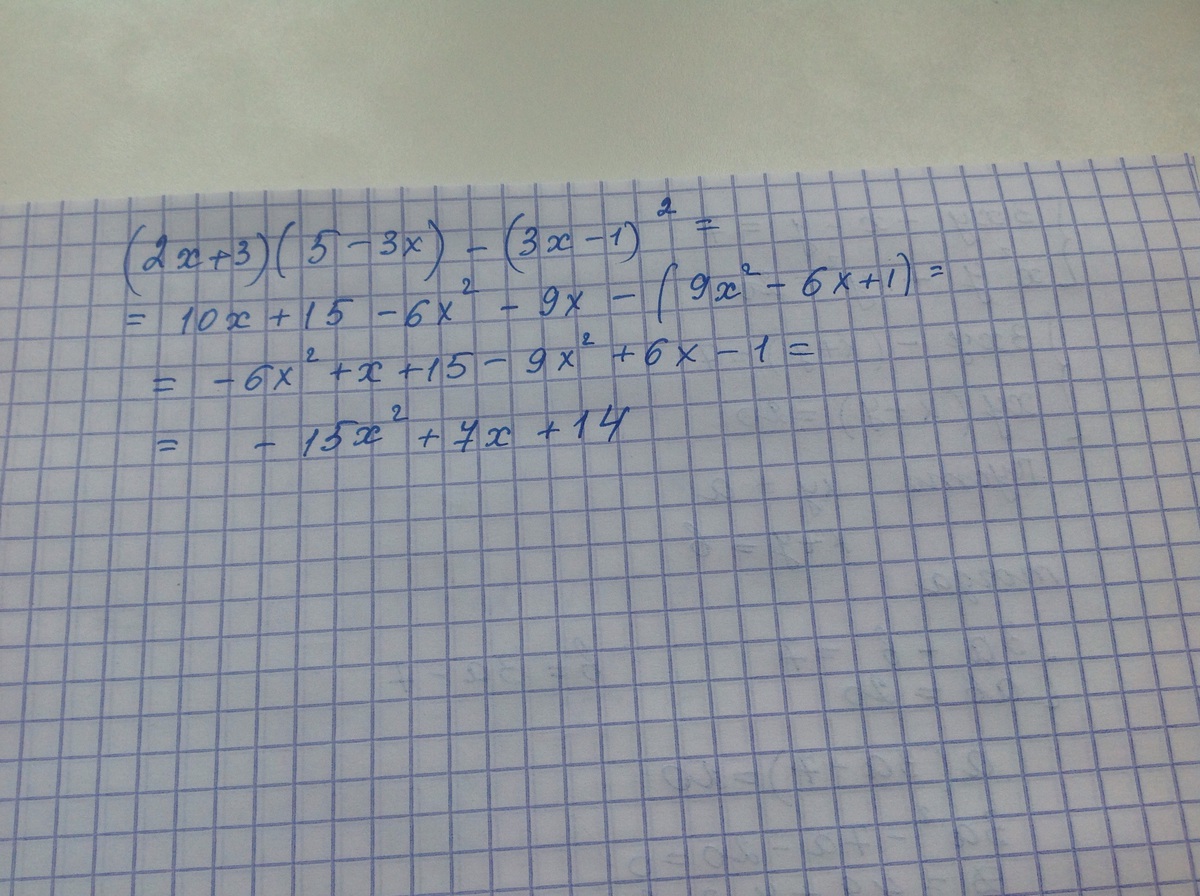 (2x+3)(5-3x)-(3x-1)²=
= 10x+15-6x²-9x-(9x²-6x+1)=
= -6x²+x+15-9x²+6x-1=
= -15x²+7x+14